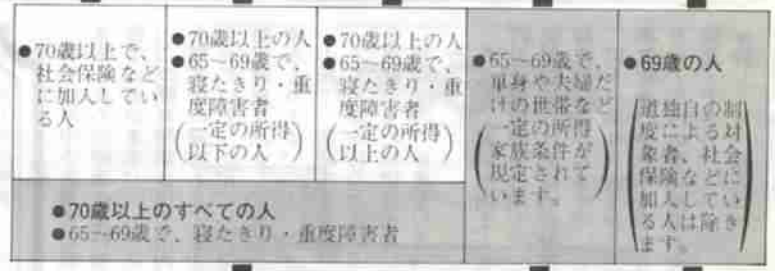 ●70歳以上で、
社会保険など
に加入してい
る人
●70歳以上の人
●65〜69歳で、
寝たきり・重
度障害者
(一定の所得
以下の人)
●70歳以上の人
●65〜69歳で、
寝たきり・重
度障害者
(一定の所得
以上の人)
●65〜69歳で、
単身や夫婦だ
けの世帯など
(一定の所得
家族条件が
規定されて
います。)
●69歳の人
(道独自の制
度による対
象者、社会
保険などに
加入してい
る人は除き
ます。)
●70歳以上のすべての人
●65〜69歳で、寝たきり・重度障害者